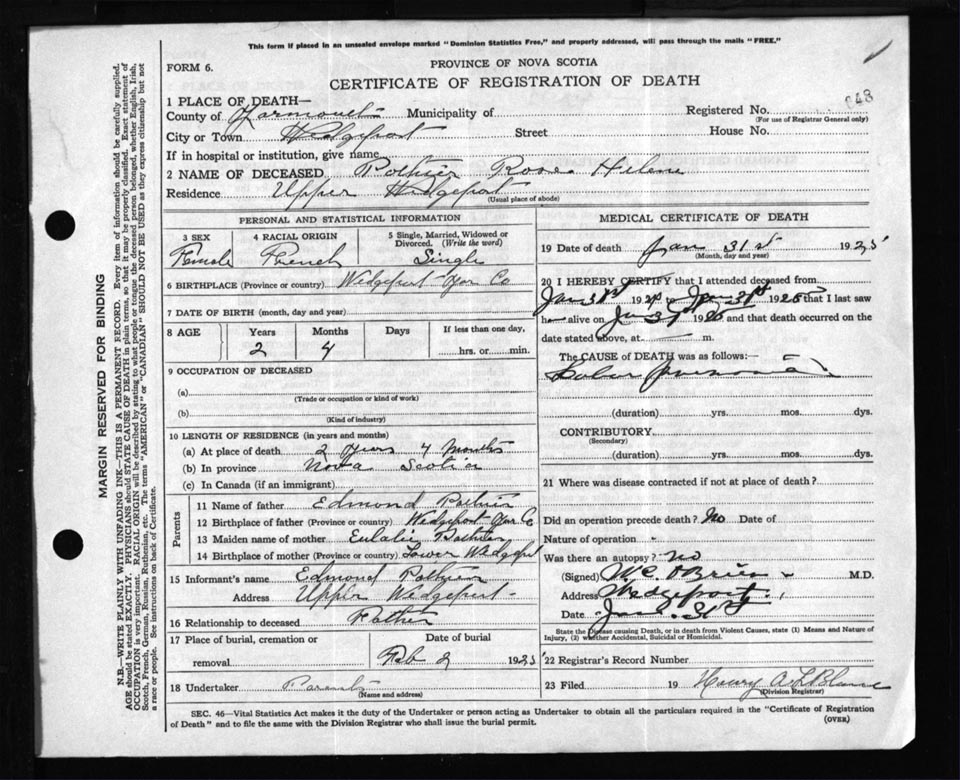 This form if placed in an unsealed envelope marked "Dominion Statistics Free," and properly addressed, will pass through the mails "FREE."
FORM 6.
PROVINCE OF NOVA SCOTIA
CERTIFICATE OF REGISTRATION OF DEATH
648
1 PLACE OF DEATH—
County of Yarmouth Municipality of Registered No.
(For use of Registrar General only)
City or Town Wedgeport Street House No.
If in hospital or institution, give name
2 NAME OF DECEASED Pothier Rose Helene
Residence Upper Wedgeport
(Usual place of abode)
PERSONAL AND STATISTICAL INFORMATION
3 SEX 4 RACIAL ORIGIN 5 Single, Married, Widowed or Divorced. (Write the word)
Female French Single
6 BIRTHPLACE (Province or country) Wedgeport Yar Co
7 DATE OF BIRTH (month, day and year)
8 AGE Years Months Days If less than one day,
2 4 hrs. or min.
9 OCCUPATION OF DECEASED
(a)
(Trade or occupation or kind of work)
(b)
(Kind of industry)
10 LENGTH OF RESIDENCE (in years and months)
(a) At place of death 2 Years 4 Months
(b) In province Nova Scotia
(c) In Canada (if an immigrant)
Parents
11 Name of father Edmond Pothier
12 Birthplace of father (Province or country) Wedgeport Yar Co
13 Maiden name of mother Eulalie Pothier
14 Birthplace of mother (Province or country) Lower Wedgeport
15 Informant's name Edmond Pothier
Address Upper Wedgeport
16 Relationship to deceased Father
17 Place of burial, cremation or removal Date of burial
Feb 2 1925
18 Undertaker Parents
(Name and address)
MEDICAL CERTIFICATE OF DEATH
19 Date of death Jan 31st 1925
(Month, day and year)
20 I HEREBY CERTIFY that I attended deceased from
Jan 31st 192 to Jan 31st 1925 that I last saw
h alive on Jan 31 1925 and that death occurred on the
date stated above, at m.
The CAUSE of DEATH was as follows:—
Lobar Pneumonia
(duration) yrs. mos. dys.
CONTRIBUTORY
(Secondary)
(duration) yrs. mos. dys.
21 Where was disease contracted if not at place of death?
Did an operation precede death? No Date of
Nature of operation
Was there an autopsy? No
(Signed) W.C. O'Brien M.D.
Address Wedgeport
Date Jan 31st
State the Disease causing Death, or in death from Violent Causes, state (1) Means and Nature of
Injury, (2) whether Accidental, Suicidal or Homicidal.
22 Registrar's Record Number
23 Filed 19 Henry A. LeBlanc
(Division Registrar)
SEC. 46—Vital Statistics Act makes it the duty of the Undertaker or person acting as Undertaker to obtain all the particulars required in the "Certificate of Registration
of Death" and to file the same with the Division Registrar who shall issue the burial permit.
(OVER)
MARGIN RESERVED FOR BINDING
N.B.—WRITE PLAINLY WITH UNFADING INK—THIS IS A PERMANENT RECORD. Every item of information should be carefully supplied.
AGE should be stated EXACTLY. PHYSICIANS should STATE CAUSE OF DEATH in plain terms, so that it may be properly classified. Exact statement of
OCCUPATION is very important. RACIAL ORIGIN will be described by stating to what people or tongue the deceased person belonged, whether English, Irish,
Scotch, French, German, Russian, Ruthenian, etc. The terms "AMERICAN" or "CANADIAN" SHOULD NOT BE USED as they express citizenship but not
a race or people. See instructions on back of Certificate.